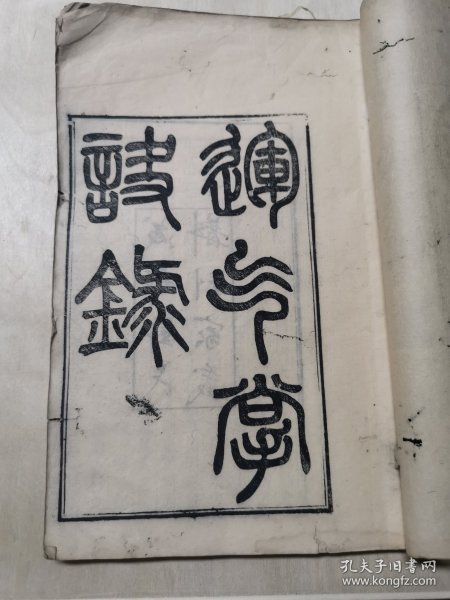 運气掌
訣錄
孔夫子旧书网
www.kongfz.com